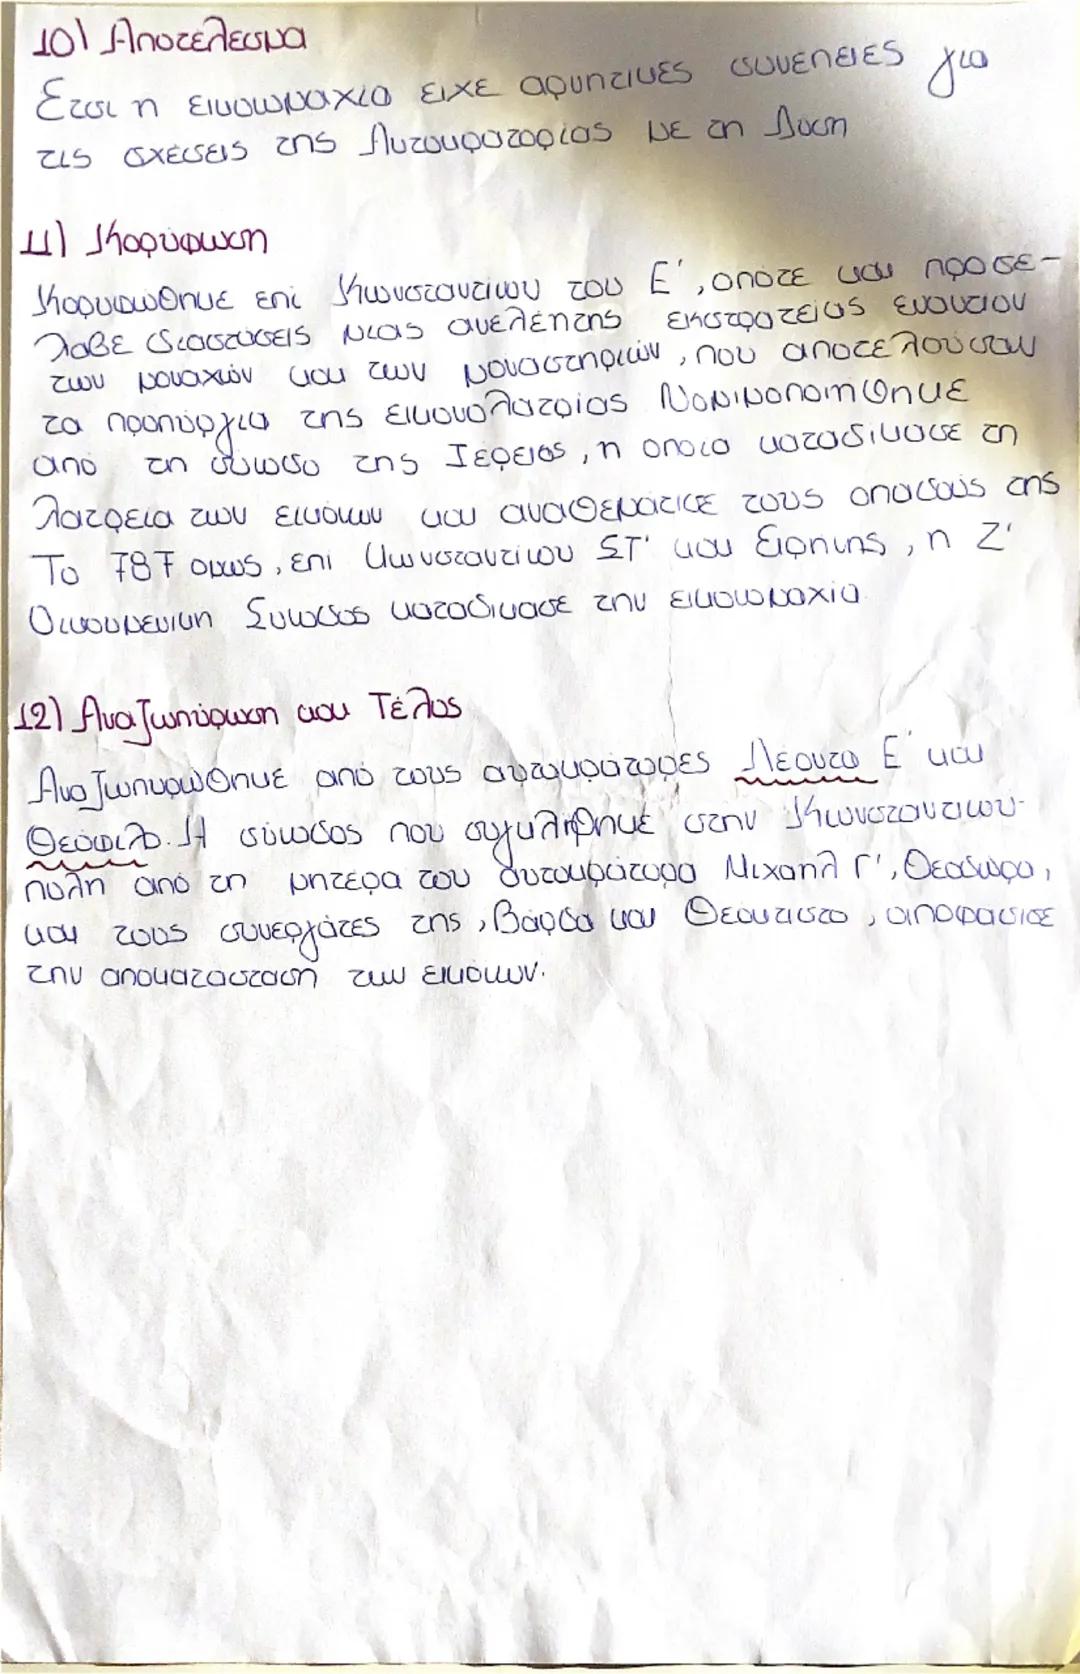 10) Αποτέλεσμα
Ετσι η εικονομαχία ειχε αρνητικές συνέπειες για
τις σχέσεις της Αυτοκρατορίας με τη Δύση
11) Κορύφωση
Κορυφώθηκε επί Κωνσταντίνου του Ε', οπότε και προσέ-
λαβε διαστάσεις μιας ανελέητης εκστρατείας εναντίον
των μοναχών και των μοναστηριών, που αποτελούσαν
τα προπύργια της εικονολατρίας Νομιμοποιήθηκε
από τη σύνοδο της Ιέρειας, η οποία καταδίκασε τη
λατρεία των εικόνων και αναθεμάτισε τους οπαδούς της
Το 787 ομως, επι Κωνσταντίνου ΣΤ' και Ειρήνης, η Ζ'
Οικουμενική Συνοδος καταδίκασε την εικονομαχία.
12) Αναζωπύρωση και Τέλος
Αναζωπυρώθηκε από τους αυτοκράτορες Λέοντα Ε' και
Θεόφιλο. Η σύνοδος που συγκλήθηκε στην Κωνσταντινού-
πολη από τη μητέρα του αυτοκράτορα Μιχαηλ Γ', Θεοδώρα,
και τους συνεργάτες της, Βάρδα και Θεόκτιστο, αποφάσισε
την αποκατάσταση των εικόνων.